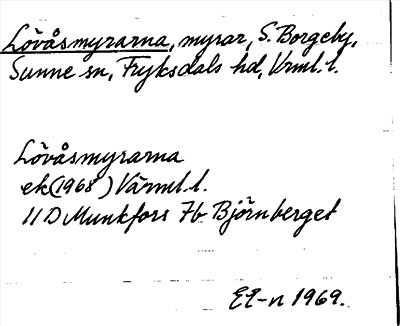 Lövåsmyrarna, myrar, S. Borgeby,
Sunne sn, Fryksdals hd, Vrml. l.
Lövåsmyrarna
ek (1968) Värml. l.
11 D Munkfors 7b Björnberget
EE-n 1969.